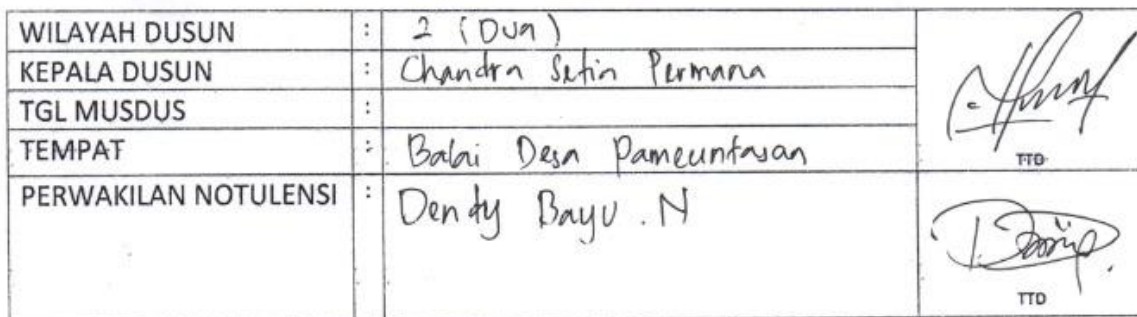 WILAYAH DUSUN : 2 (Dua)
KEPALA DUSUN : Chandra Setia Permana
TGL MUSDUS :
TEMPAT : Balai Desa Pameuntasan
TTD
PERWAKILAN NOTULENSI : Dendy Bayu . N
TTD